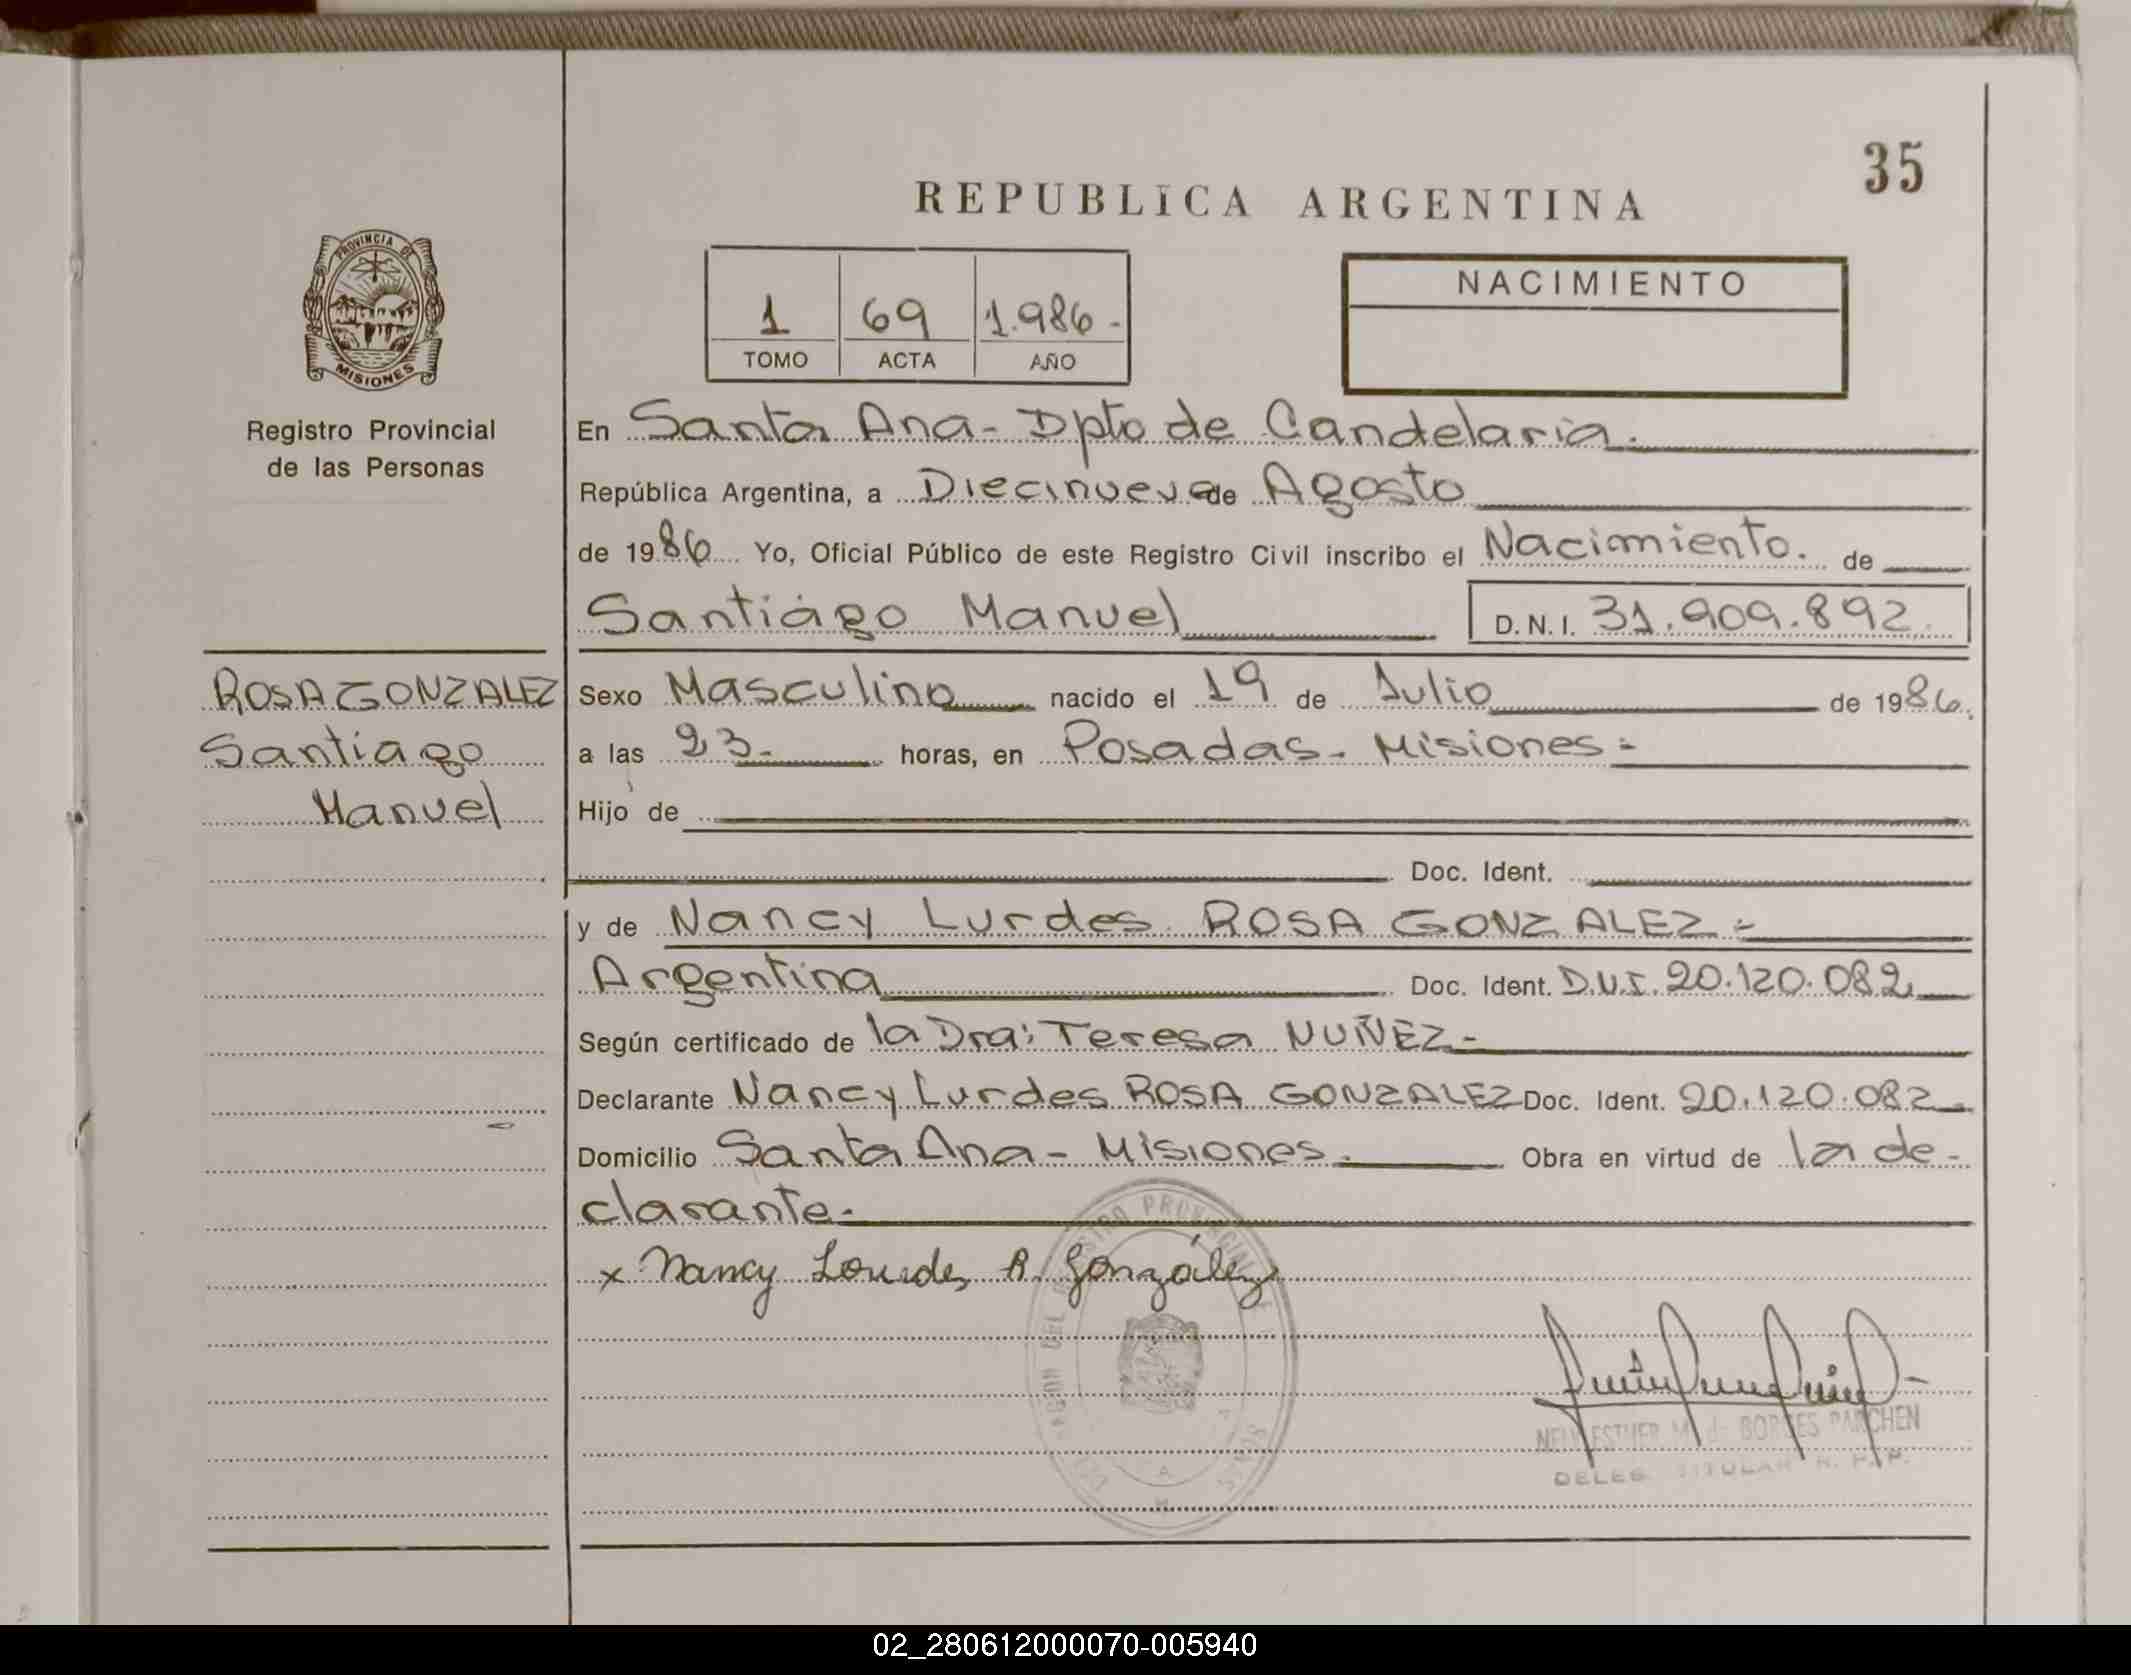 35
REPUBLICA ARGENTINA
PROVINCIA DE
MISIONES
Registro Provincial
de las Personas
1 69 1.986-
TOMO ACTA AÑO
NACIMIENTO
En Santa Ana - Dpto de Candelaria.
República Argentina, a Diecinueve de Agosto
de 1986 Yo, Oficial Público de este Registro Civil inscribo el Nacimiento. de
Santiágo Manuel D.N.I. 31.909.892
ROSA GONZALEZ
Santiago
Manuel
Sexo Masculino nacido el 19 de Julio de 1986.
a las 23- horas, en Posadas - Misiones -
Hijo de
Doc. Ident.
y de Nancy Lurdes ROSA GONZALEZ -
Argentina Doc. Ident. D.N.I. 20.120.082
Según certificado de la Dra: Teresa NUÑEZ -
Declarante Nancy Lurdes ROSA GONZALEZ Doc. Ident. 20.120.082
Domicilio Santa Ana - Misiones. Obra en virtud de la de-
clarante.
x Nancy Lourdes R. González
ESTHER M. de BORGES PARCHEN
DELEG. TITULAR R. P. P.
02_280612000070-005940